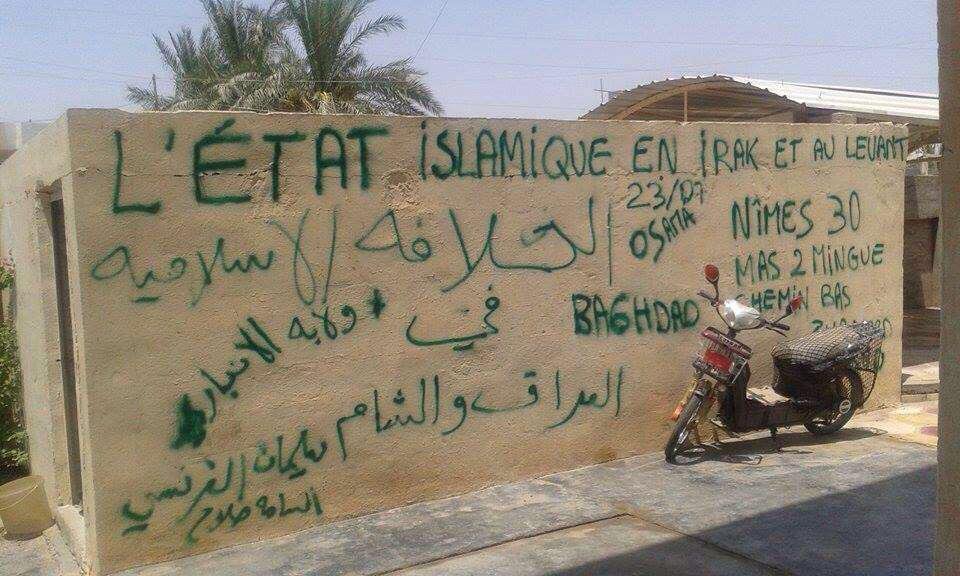 L'ÉTAT İSLAMİQUE EN İRAK ET AU LEVANT
23/07
OSAMA
NÎMES 30
MAS 2 MINGUE
CHEMIN BAS
BAGHDAD
الخلافه الاسلاميه
في
+ ولايه الانبار
العراق والشام
سليمان الفرنسي